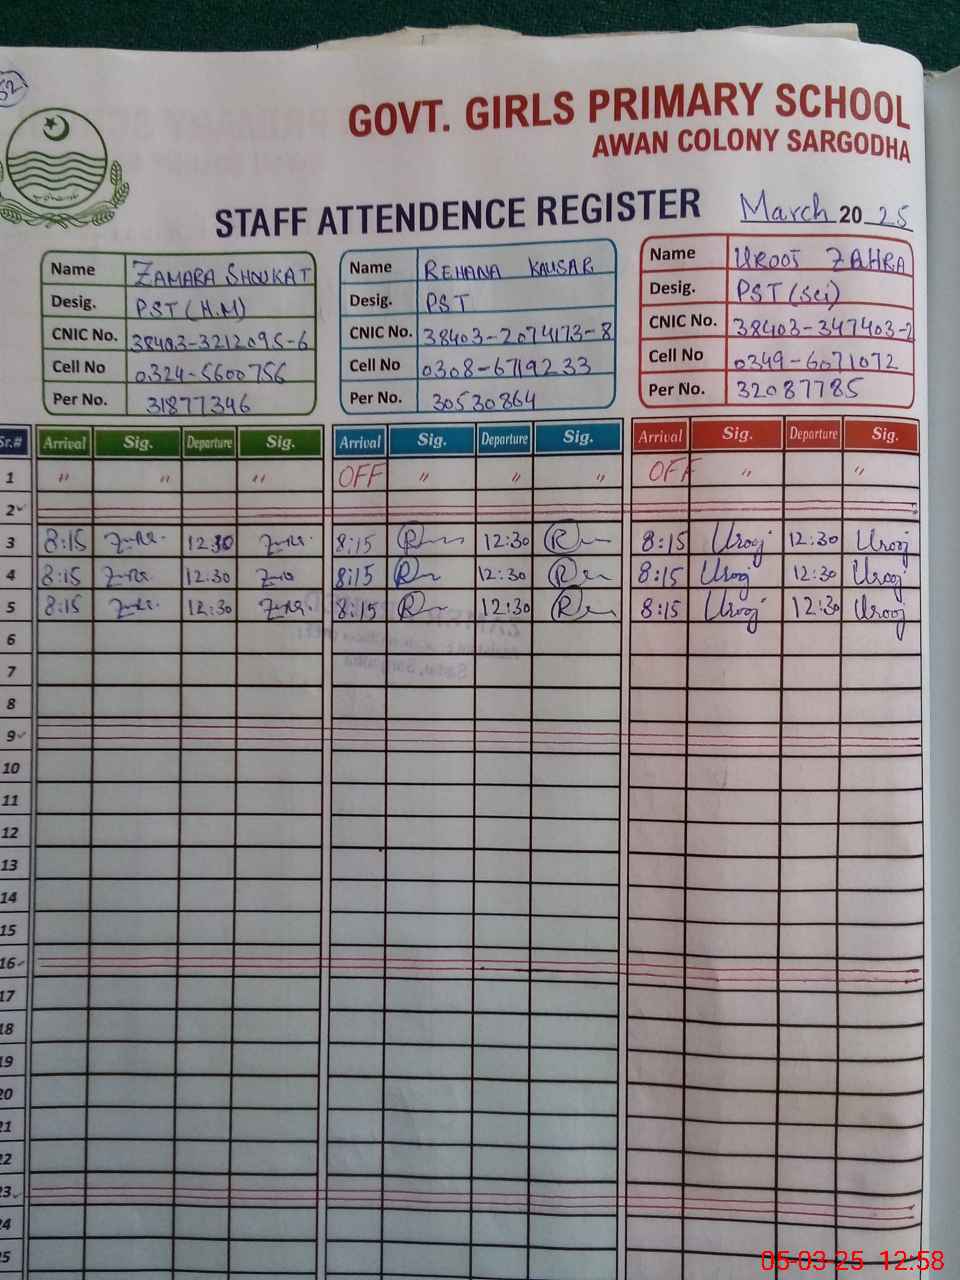 52
GOVT. GIRLS PRIMARY SCHOOL
AWAN COLONY SARGODHA
STAFF ATTENDENCE REGISTER March 20 25
Name ZAMARA SHOUKAT Name REHANA KAUSAR Name UROOJ ZAHRA
Desig. PST (H.M) Desig. PST Desig. PST (Sci)
CNIC No. 38403-3212095-6 CNIC No. 38403-2074173-8 CNIC No. 38403-347403-2
Cell No 0324-5600756 Cell No 0308-6719233 Cell No 0349-6071072
Per No. 31877346 Per No. 30530864 Per No. 32087785
Sr.# Arrival Sig. Departure Sig. Arrival Sig. Departure Sig. Arrival Sig. Departure Sig.
1 " " " OFF " " " OFF " "
2
3 8:15 12:30 8:15 12:30 8:15 Urooj 12:30 Urooj
4 8:15 12:30 8:15 12:30 8:15 Urooj 12:30 Urooj
5 8:15 12:30 8:15 12:30 8:15 Urooj 12:30 Urooj
6
7
8
9
10
11
12
13
14
15
16
17
18
19
20
21
22
23
24
25
05-03-25 12:58